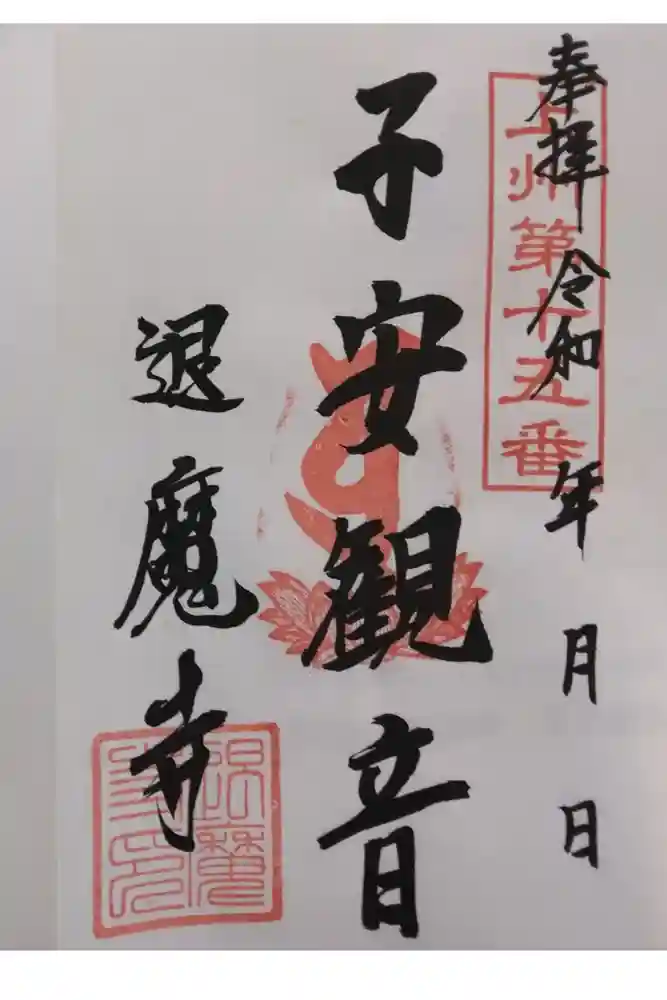 奉拝 令和 年 月 日
上州第十五番
子安観音
退魔寺
退魔寺印